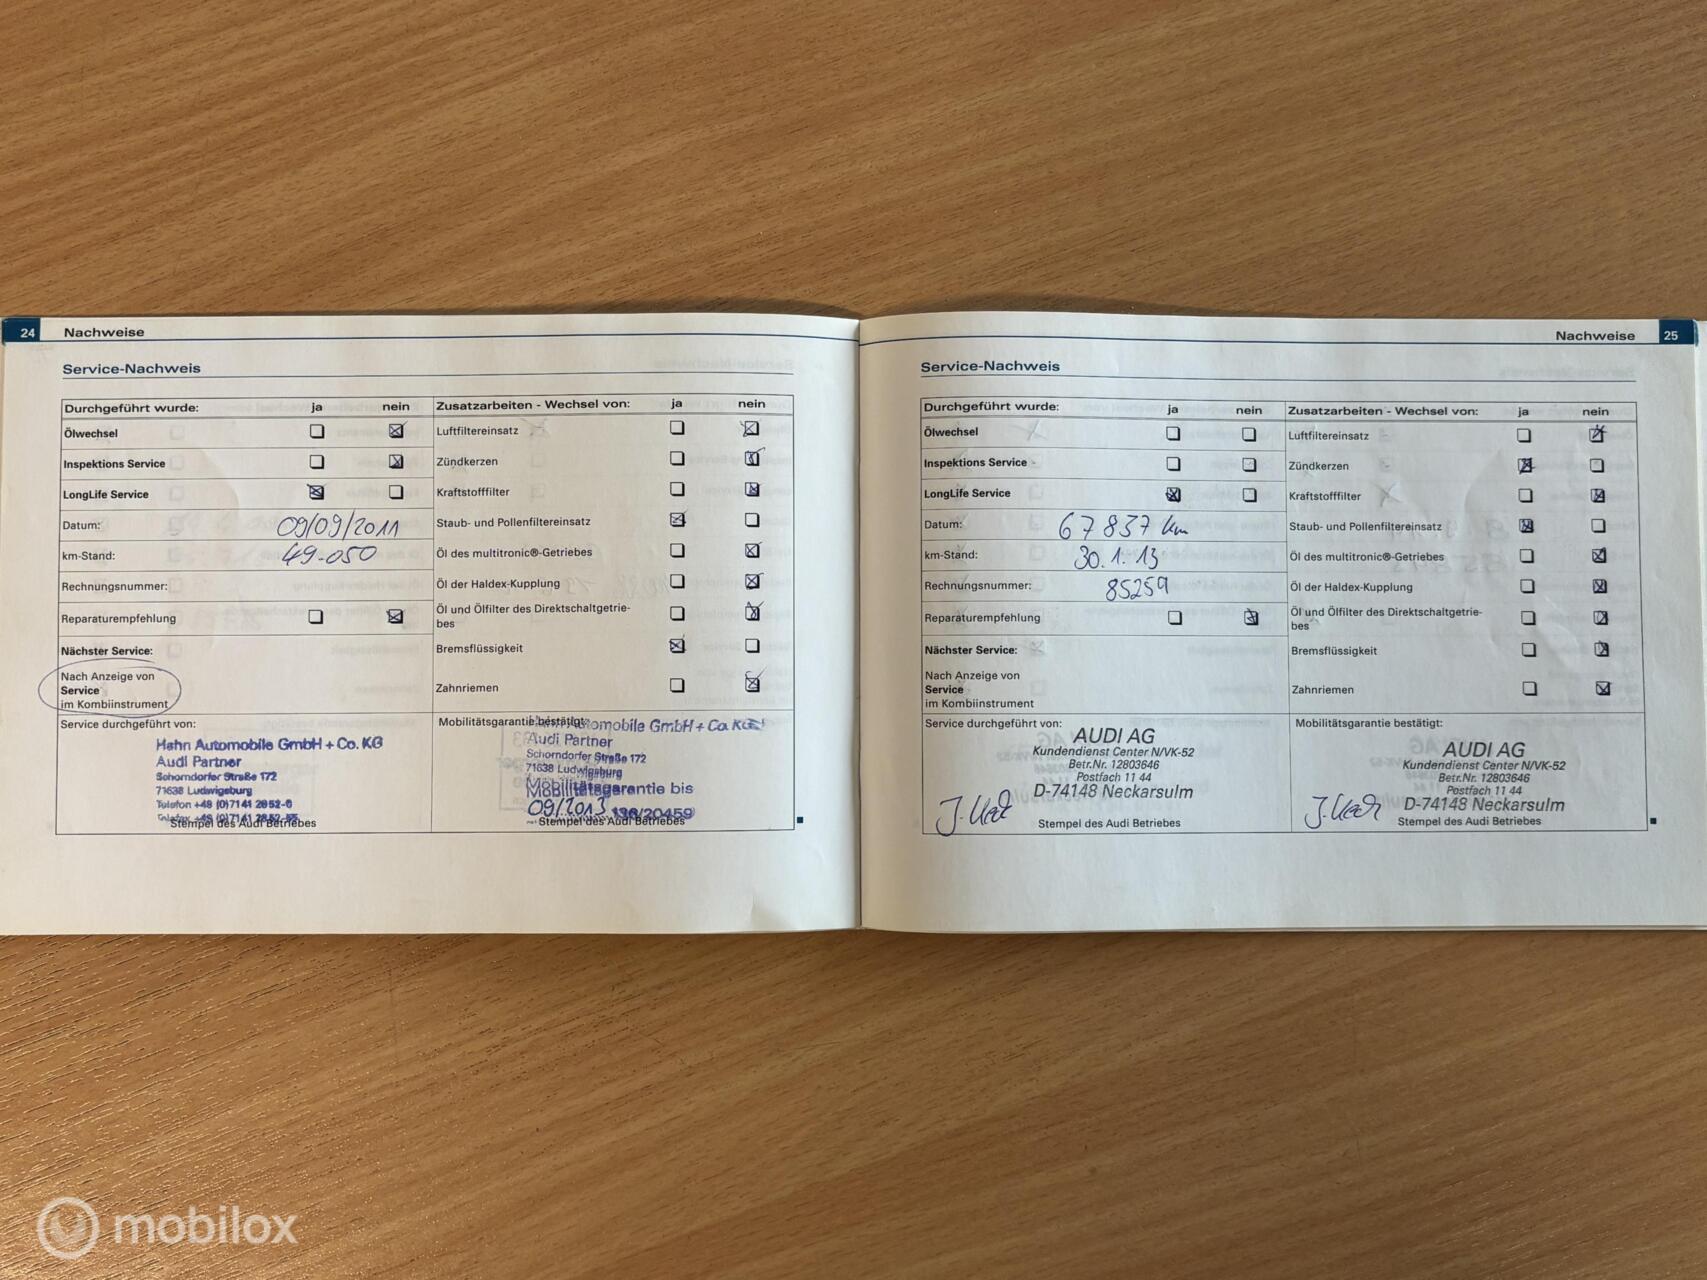 24 Nachweise
Service-Nachweis
Durchgeführt wurde: ja nein
Ölwechsel
Inspektions Service
LongLife Service
Datum: 09/09/2011
km-Stand: 49.050
Rechnungsnummer:
Reparaturempfehlung
Nächster Service:
Nach Anzeige von
Service
im Kombiinstrument
Zusatzarbeiten - Wechsel von: ja nein
Luftfiltereinsatz
Zündkerzen
Kraftstofffilter
Staub- und Pollenfiltereinsatz
Öl des multitronic®-Getriebes
Öl der Haldex-Kupplung
Öl und Ölfilter des Direktschaltgetrie-
bes
Bremsflüssigkeit
Zahnriemen
Service durchgeführt von:
Hahn Automobile GmbH + Co. KG
Audi Partner
Schorndorfer Straße 172
71638 Ludwigsburg
Telefon +49 (0)7141 2852-0
Stempel des Audi Betriebes
Mobilitätsgarantie bestätigt:
Automobile GmbH + Co. KG
Audi Partner
Schorndorfer Straße 172
71638 Ludwigsburg
Mobilitätsgarantie bis
09/2013 136/20459
Stempel des Audi Betriebes
Nachweise 25
Service-Nachweis
Durchgeführt wurde: ja nein
Ölwechsel
Inspektions Service
LongLife Service
Datum: 67837 km
km-Stand: 30.1.13
Rechnungsnummer: 85259
Reparaturempfehlung
Nächster Service:
Nach Anzeige von
Service
im Kombiinstrument
Zusatzarbeiten - Wechsel von: ja nein
Luftfiltereinsatz
Zündkerzen
Kraftstofffilter
Staub- und Pollenfiltereinsatz
Öl des multitronic®-Getriebes
Öl der Haldex-Kupplung
Öl und Ölfilter des Direktschaltgetrie-
bes
Bremsflüssigkeit
Zahnriemen
Service durchgeführt von:
AUDI AG
Kundendienst Center N/VK-52
Betr.Nr. 12803646
Postfach 11 44
D-74148 Neckarsulm
Stempel des Audi Betriebes
Mobilitätsgarantie bestätigt:
AUDI AG
Kundendienst Center N/VK-52
Betr.Nr. 12803646
Postfach 11 44
D-74148 Neckarsulm
Stempel des Audi Betriebes
mobilox